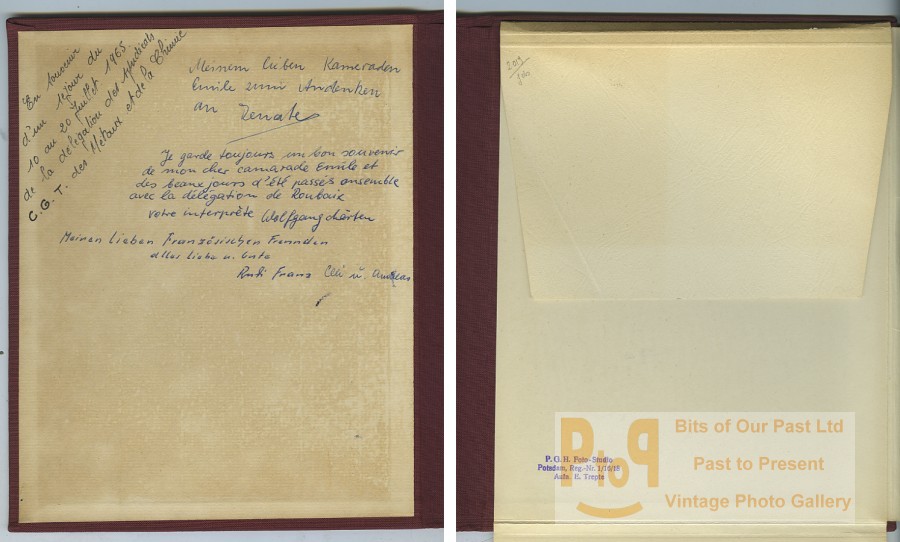 En souvenir
d'un séjour du
10 au 20 Juillet 1965
de la délégation des syndicats
C. G. T. des Métaux et de la Chimie
Meinem lieben Kameraden
Emile zum Andenken
an Renate
Je garde toujours un bon souvenir
de mon cher camarade Emile et
des beaux jours d'été passés ensemble
avec la délégation de Roubaix
votre interprète Wolfgang
Meinen lieben Französischen Freunden
alles liebe u. Gute
Rudi Franz Elli u. Andreas
P. G. H. Foto-Studio
Potsdam, Reg.-Nr. 1/16/18
Aufn. E. Trepte
PtoP
Bits of Our Past Ltd
Past to Present
Vintage Photo Gallery